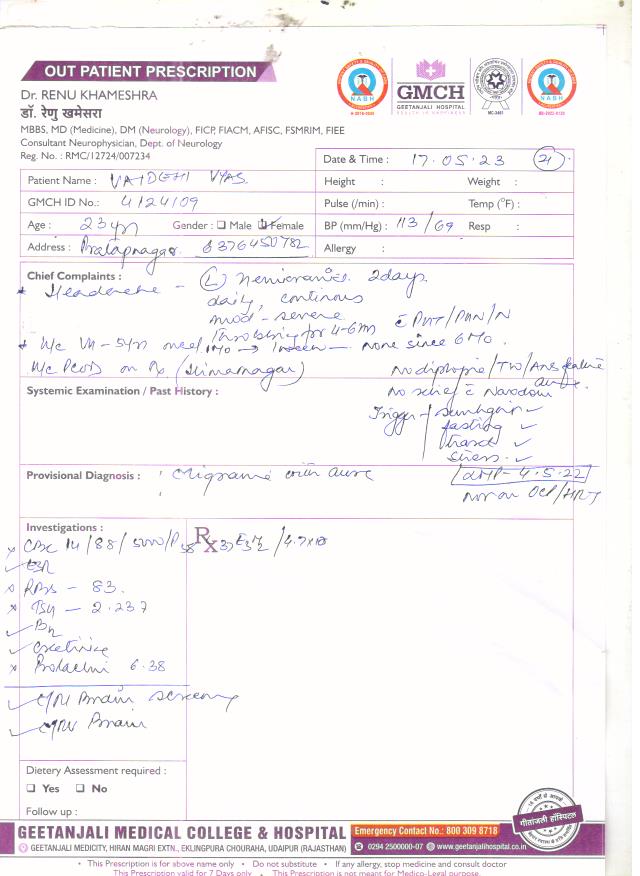 OUT PATIENT PRESCRIPTION
Dr. RENU KHAMESHRA
डॉ. रेणु खमेसरा
MBBS, MD (Medicine), DM (Neurology), FICP, FIACM, AFISC, FSMRIM, FIEE
Consultant Neurophysician, Dept. of Neurology
Reg. No. : RMC/12724/007234
NABH
GMCH
GEETANJALI HOSPITAL
NABH
Date & Time : 17.05.23
Patient Name : VAIDEHI VYAS
Height : Weight :
GMCH ID No.: 4124109
Pulse (/min) : Temp (°F) :
Age : 23 yrs Gender : Male Female
BP (mm/Hg) : 113/69 Resp :
Address : Pratapnagar 6376450782
Allergy :
Chief Complaints : (L) hemicrania 2days
* Headache -
daily, continous
mod - severe
Throbbing for 4-6
None since 6 Mo.
H/o PCOD on Rx (Himatnagar)
No diplopia
Systemic Examination / Past History :
Trigger - sunlight ✓
fasting ✓
travel ✓
stress ✓
Provisional Diagnosis : Migraine with aura
LMP - 4.5.22
not on OCP/HRT
Investigations : Rx
CBC 14/88/5000/
ESR
RBS - 83.
TSH - 2.237
B12
Creatinine
Prolactin 6.38
MRI Brain screening
MRV Brain
Dietery Assessment required :
Yes No
Follow up :
गीतांजली हॉस्पिटल
GEETANJALI MEDICAL COLLEGE & HOSPITAL
Emergency Contact No.: 800 309 8718
GEETANJALI MEDICITY, HIRAN MAGRI EXTN., EKLINGPURA CHOURAHA, UDAIPUR (RAJASTHAN)
0294 2500000-07 www.geetanjalihospital.co.in
• This Prescription is for above name only • Do not substitute • If any allergy, stop medicine and consult doctor
This Prescription valid for 7 Days only • This Prescription is not meant for Medico-Legal purpose.